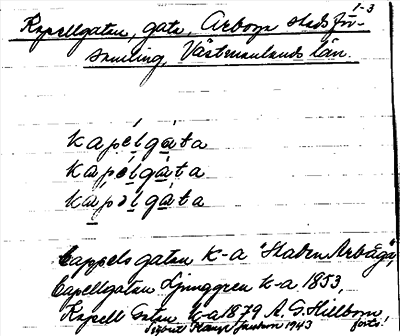 1-3
Kapellgatan, gata, Arboga stadsför-
samling, Västmanlands län.
kapelgata
kapelgata
kapelgata
Cappels gatan k-a "Staden Arboga",
Capellgatan Ljunggren k-a 1853,
Kapell Gatan k-a 1879 A. G.
1943 forts.